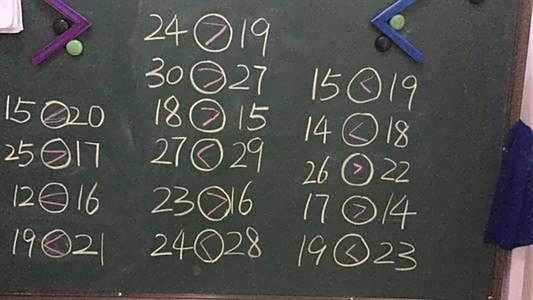 15 < 20
25 > 17
12 < 16
19 < 21
24 > 19
30 > 27
18 > 15
27 < 29
23 > 16
24 < 28
15 < 19
14 < 18
26 > 22
17 > 14
19 < 23